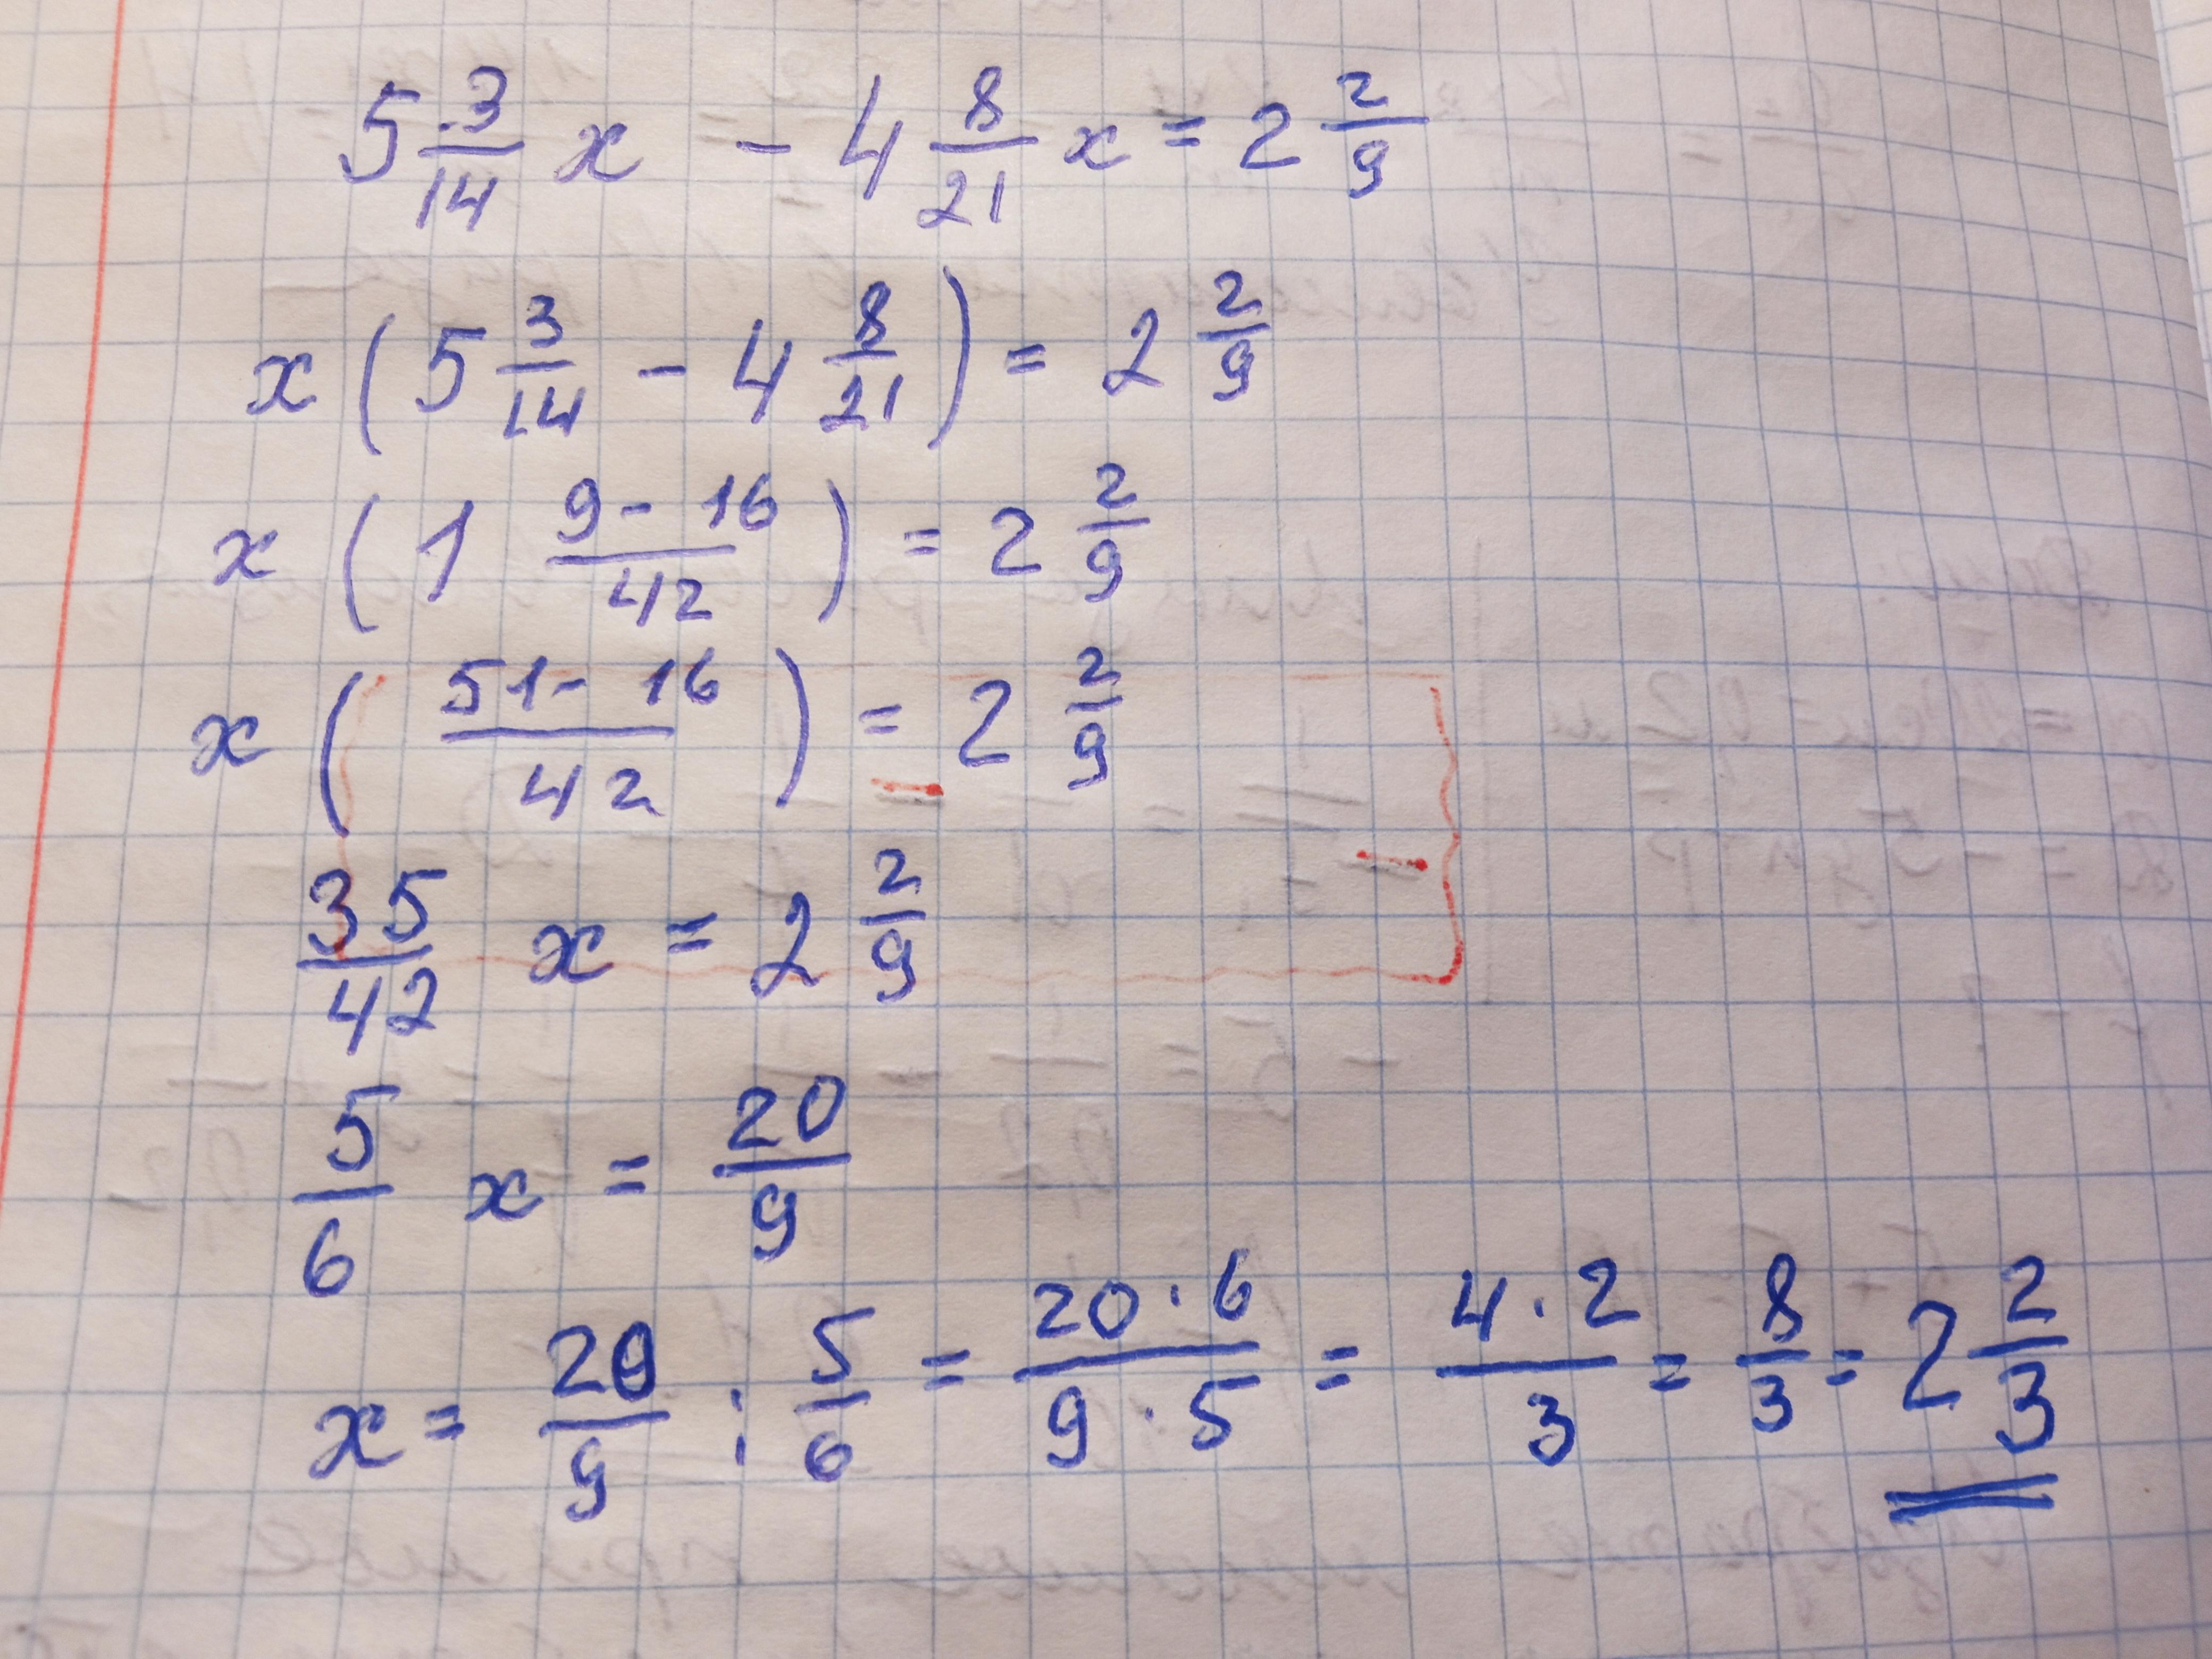 5 3/14 x - 4 8/21 x = 2 2/9
x (5 3/14 - 4 8/21) = 2 2/9
x (1 9-16/42) = 2 2/9
x (51-16/42) = 2 2/9
35/42 x = 2 2/9
5/6 x = 20/9
x = 20/9 : 5/6 = 20·6/9·5 = 4·2/3 = 8/3 = 2 2/3